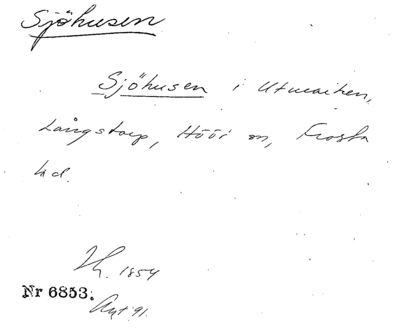 Sjöhusen
Sjöhusen i Utmarken,
Långstorp, Höör sn, Frosta
hd.
1854
Nr 6853.
Avt 91.